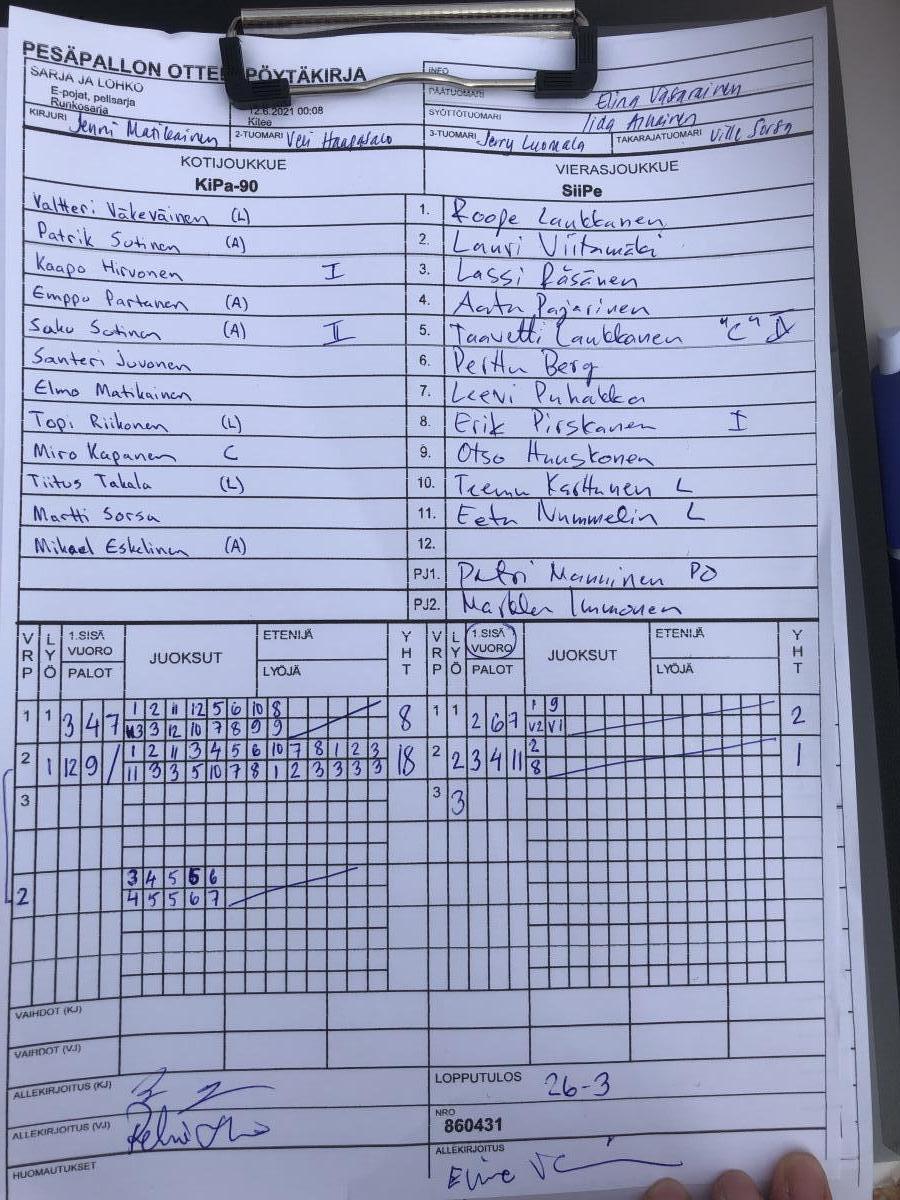 PESÄPALLON OTTE PÖYTÄKIRJA
SARJA JA LOHKO
E-pojat, pelisarja
Runkosarja
12.6.2021 00:08
Kitee
INFO
PÄÄTUOMARI Elina Vasarainen
SYÖTTÖTUOMARI Iida
KIRJURI Jenni Matikainen 2-TUOMARI Veli Haapasalo 3-TUOMARI Jerry Luomala TAKARAJATUOMARI Ville Sorsa
KOTIJOUKKUE VIERASJOUKKUE
KiPa-90 SiiPe
Valtteri Väkeväinen (L) 1. Roope Laukkanen
Patrik Sutinen (A) 2. Lauri Viitamäki
Kaapo Hirvonen I 3. Lassi Räsänen
Emppu Partanen (A) 4. Aatu Pajarinen
Saku Sutinen (A) II 5. Taavetti Laukkanen "C"
Santeri Juvonen 6. Perttu Berg
Elmo Matikainen 7. Leevi Puhakka
Topi Riikonen (L) 8. Erik Pirskanen I
Miro Kapanen C 9. Otso Huuskonen
Tiitus Takala (L) 10. Teemu Karttunen L
Martti Sorsa 11. Eetu Nummelin L
Mikael Eskelinen (A) 12.
PJ1. Petri Manninen PO
PJ2. Markku Immonen
VRP LYÖ 1.SISÄ VUORO PALOT JUOKSUT ETENIJÄ LYÖJÄ YHT VRP LYÖ 1.SISÄ VUORO PALOT JUOKSUT ETENIJÄ LYÖJÄ YHT
1 1 3 4 7 1 2 11 12 5 6 10 8 8 1 1 2 6 7 1 9 2
3 12 10 7 8 9 9 V2 V1
2 1 12 9 / 1 2 11 3 4 5 6 10 7 8 1 2 3 18 2 2 3 4 11 2 1
11 3 3 5 10 7 8 1 2 3 3 3 3 8
3 3 3
3 4 5 6 6
2 4 5 5 6 7
VAIHDOT (KJ)
VAIHDOT (VJ)
ALLEKIRJOITUS (KJ) LOPPUTULOS 26-3
ALLEKIRJOITUS (VJ) NRO
860431
HUOMAUTUKSET ALLEKIRJOITUS